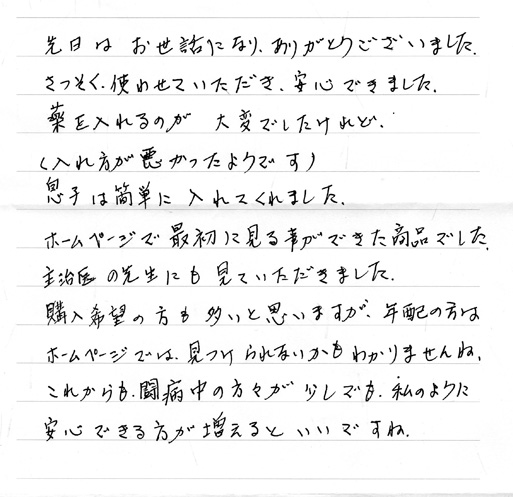 先日は お世話になり、ありがとうございました。
さっそく、使わせていただき、安心できました。
薬を入れるのが 大変でしたけれど、
(入れ方が悪かったようです)
息子は簡単に 入れてくれました。
ホームページで 最初に見る事ができた商品でした。
主治医の先生にも 見ていただきました。
購入希望の方も 多いと思いますが、年配の方は
ホームページでは、見つけられないかもわかりませんね。
これからも、闘病中の方々が 少しでも、私のように
安心できる方が増えると いいですね。